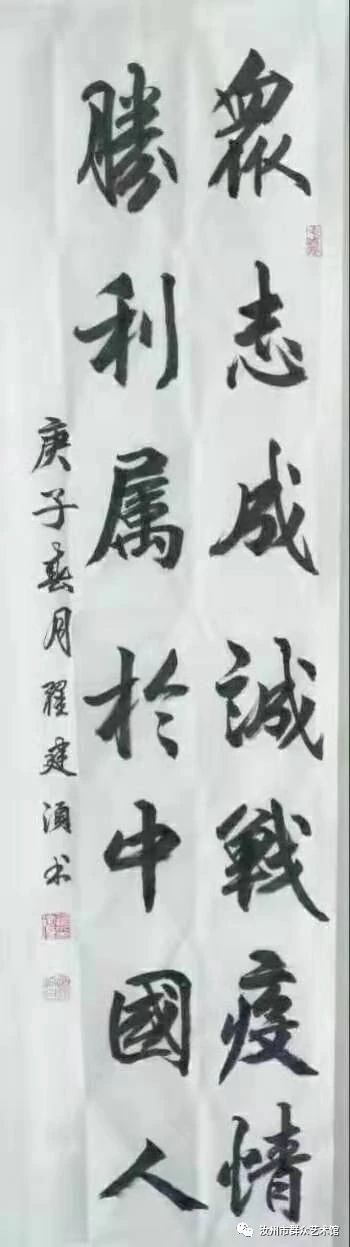 眾志成誠戰疫情
勝利属於中國人
庚子春月翟建須書
汝州市群众艺术馆